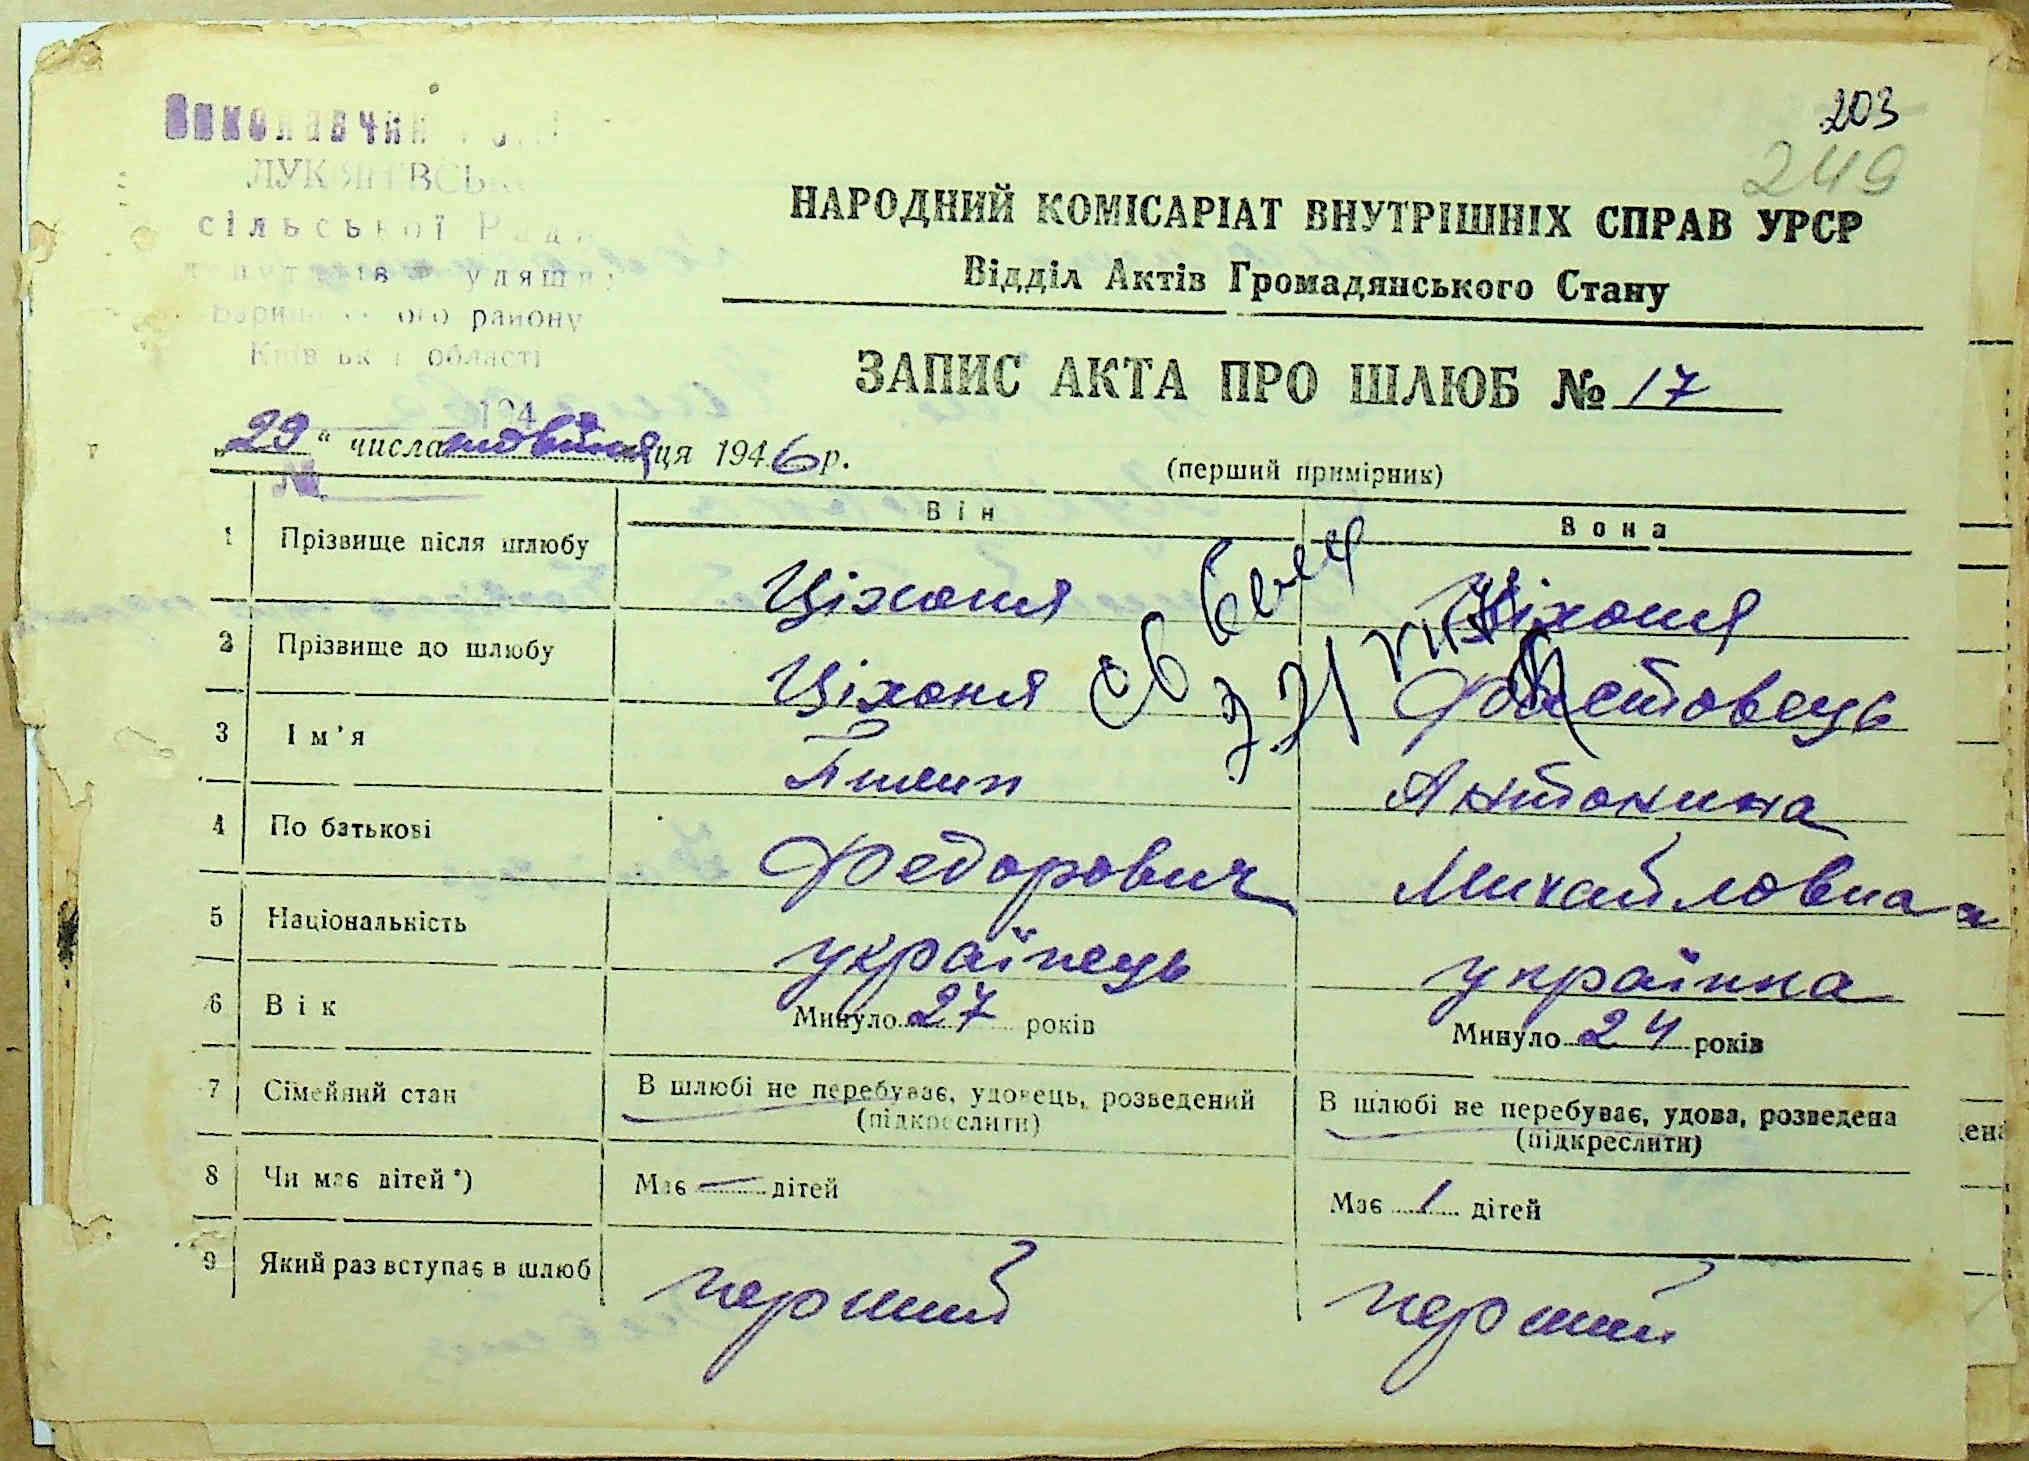 203
249
Виконавчий
сільської Рад
району
області
НАРОДНИЙ КОМІСАРІАТ ВНУТРІШНІХ СПРАВ УРСР
Відділ Актів Громадянського Стану
ЗАПИС АКТА ПРО ШЛЮБ № 17
194
„29“ числа жовтня ця 1946 р.
(перший примірник)
№
Він Вона
1 Прізвище після шлюбу Ціхоня Ціхоня
2 Прізвище до шлюбу Ціхоня Фастовець
3 Ім'я Пилип Антонина
4 По батькові Федорович Михайловна
5 Національність українець українка
6 Вік Минуло 27 років Минуло 24 років
7 Сімейний стан В шлюбі не перебуває, удовець, розведений В шлюбі не перебуває, удова, розведена
(підкреслити) (підкреслити)
8 Чи має дітей *) Має — дітей Має 1 дітей
9 Який раз вступає в шлюб перший перший